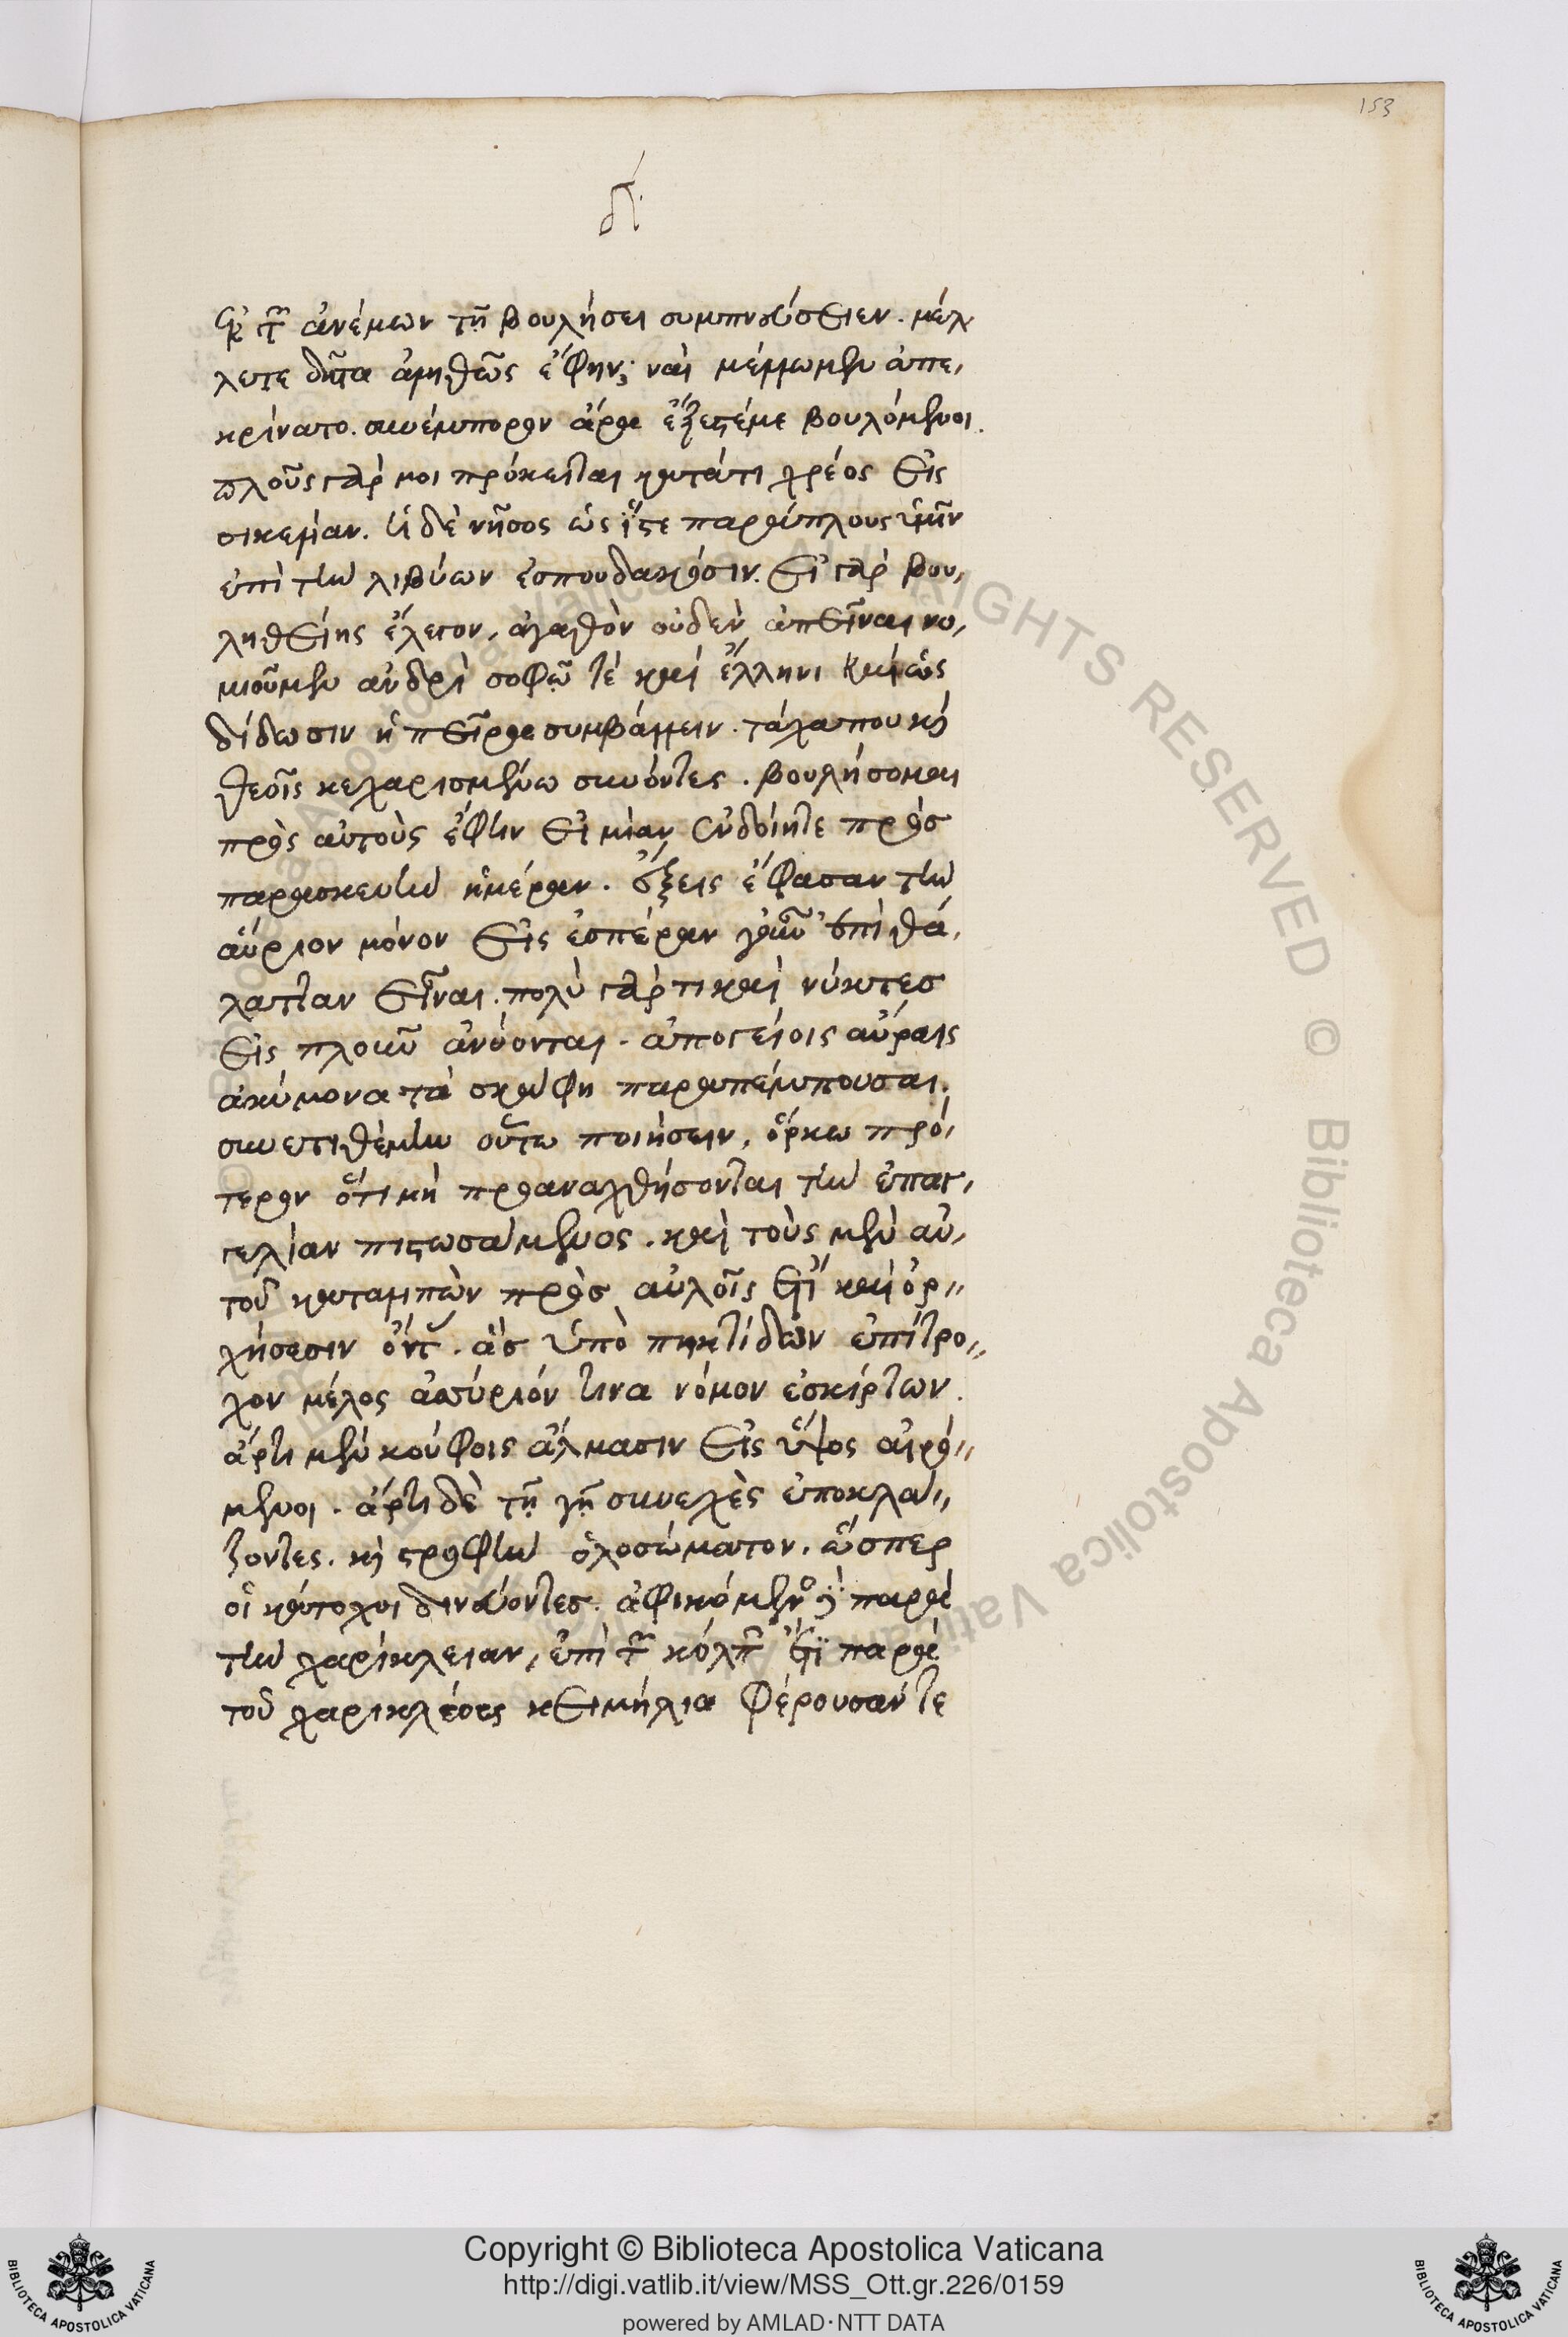 153
δ΄
ἐκ τῶν ἀνέμων τῇ βουλήσει συμπνεύσειεν. μέλ
λετε δῆτα ἀληθῶς ἔφην; ναὶ μέλλομεν ἀπε,
κρίναντο. συνέμπορον ἄρα ἕξετέ με βουλόμενοι.
πλοῦς γάρ μοι πρόκειται κατά τι χρέος εἰς
σικελίαν. ἡ δὲ νῆσος ὡς ἴστε παράπλους ὑμῖν
ἐπὶ τὴν λιβύων ἐσπουδακόσιν. εἰ γὰρ βου,
ληθείης ἔλεγον, ἀγαθὸν οὐδὲν ἀπεῖναι νο,
μιοῦμεν ἀνδρὶ σοφῷ τέ καὶ ἕλληνι καὶ ὡς
δίδωσιν ἡ πεῖρα συμβάλλειν. τάχα που καὶ
θεοῖς κεχαρισμένω συνόντες. βουλήσομαι
πρὸς αὐτοὺς ἔφην εἰ μίαν ἐνδοίητε πρὸς
παρασκευὴν ἡμέραν. ἕξεις ἔφασαν τὴν
αὔριον μόνον εἰς ἑσπέραν γοῦν ἐπὶ θά,
λατταν εἶναι. πολὺ γάρ τι καὶ νύκτες
εἰς πλοῦν ἀνύονται. ἀπογείοις αὔραις
ἀκύμονα τὰ σκάφη παραπέμπουσαι.
συνετιθέμην οὕτω ποιήσειν, ὅρκω πρό,
τερον ὅτι μὴ προαναχθήσονται τὴν ἐπαγ,
γελίαν πιστωσάμενος. καὶ τοὺς μὲν αὐ,
τοῦ καταλιπὼν πρὸς αὐλοῖς ἔτι καὶ ὀρ,,
χήσεσιν ὄντας. ἃς ὑπὸ πηκτίδων ἐπίτρο,,
χον μέλος ἀσσύριόν τινα νόμον ἐσκίρτων.
ἄρτι μὲν κούφοις ἅλμασιν εἰς ὕψος αἰρό,,
μενοι. ἄρτι δὲ τῇ γῇ συνεχὲς ἐποκλά,,
ζοντες. καὶ στροφὴν ὁλοσώματον. ὥσπερ
οἱ κάτοχοι δινεύοντες. ἀφικόμενος παρὰ
τὴν χαρίκλειαν, ἐπὶ τῶν κόλπων ἔτι παρὰ
τοῦ χαρικλέους κειμήλια φέρουσάν τε
Copyright © Biblioteca Apostolica Vaticana
http://digi.vatlib.it/view/MSS_Ott.gr.226/0159
powered by AMLAD·NTT DATA